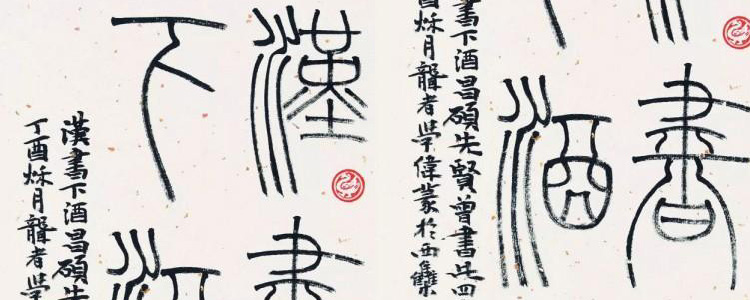 漢書
下酒
漢書下酒昌碩先
丁酉秌月聾者学
書
酒
書下酒昌碩先賢曾書此四
酉秌月聾者学偉篆於西